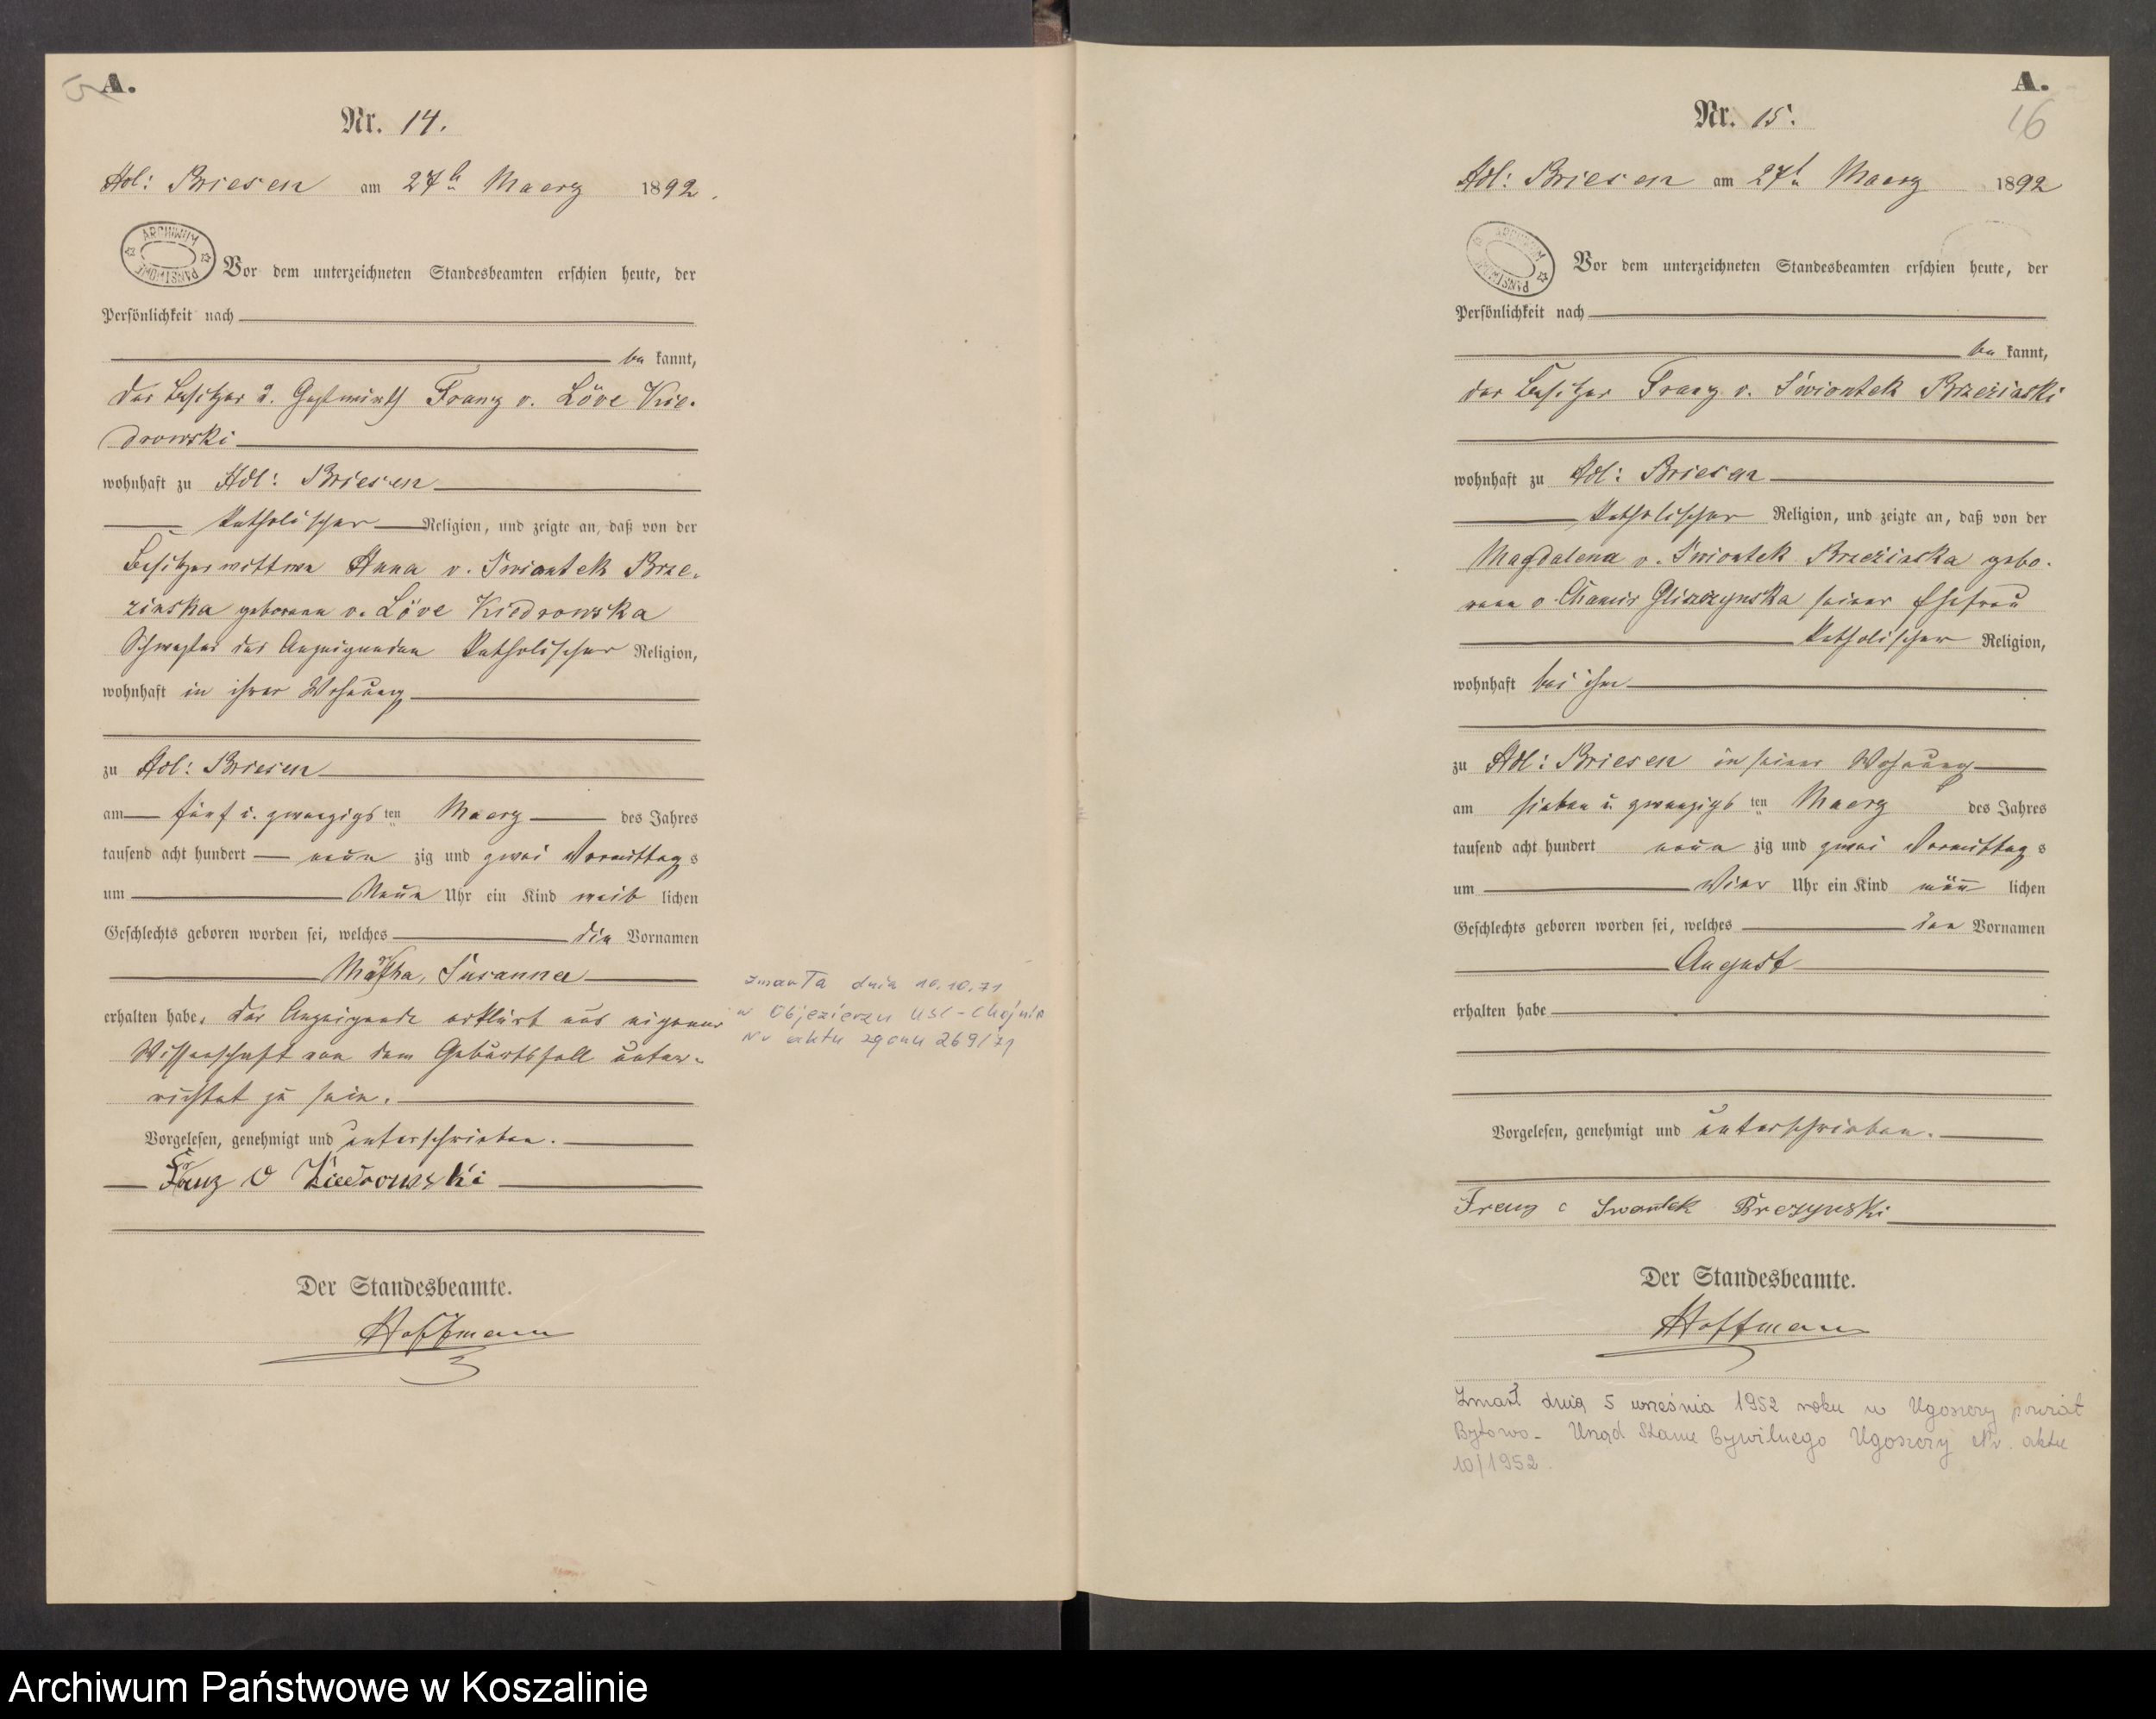 A.
Nr. 14.
Adl: Briesen am 27t Maerz 1892.
ARCHIWUM PAŃSTWOWE
Vor dem unterzeichneten Standesbeamten erschien heute, der
Persönlichkeit nach
be kannt,
der Besitzer u. Gastwirth Franz v. Löve Kie-
drowski
wohnhaft zu Adl: Briesen
katholischer Religion, und zeigte an, daß von der
Besitzerwittwe Anna v. Swiontek Brze-
zinska geborene v. Löve Kiedrowska
Schwester des Anzeigenden katholischer Religion,
wohnhaft in ihrer Wohnung
zu Adl: Briesen
am fünf u. zwanzigs ten Maerz des Jahres
tausend acht hundert neun zig und zwei Vormittag s
um Neun Uhr ein Kind weib lichen
Geschlechts geboren worden sei, welches die Vornamen
Martha, Susanna
erhalten habe, der Anzeigende erklärt aus eigener
Wissenschaft von dem Geburtsfall unter-
richtet zu sein.
Vorgelesen, genehmigt und unterschrieben.
Franz v Kiedrowski
Der Standesbeamte.
Hoffmann
zmarła dnia 10.10.71
w Objezierzu USC-Chojnie
Nr aktu zgonu 269/71
A.
16
Nr. 15.
Adl: Briesen am 27t Maerz 1892
ARCHIWUM PAŃSTW
Vor dem unterzeichneten Standesbeamten erschien heute, der
Persönlichkeit nach
be kannt,
der Besitzer Franz v. Swiontek Brzezinski
wohnhaft zu Adl: Briesen
katholischer Religion, und zeigte an, daß von der
Magdalena v. Swiontek Brzezinska gebo-
rene v. Chamir Gliszczynska seiner Ehefrau
katholischer Religion,
wohnhaft bei ihm
zu Adl: Briesen in seiner Wohnung
am sieben u. zwanzigs ten Maerz des Jahres
tausend acht hundert neun zig und zwei Vormittag s
um Vier Uhr ein Kind männ lichen
Geschlechts geboren worden sei, welches den Vornamen
August
erhalten habe
Vorgelesen, genehmigt und unterschrieben.
Franz Swantek Brezynski
Der Standesbeamte.
Hoffmann
Zmarł dnia 5 września 1952 roku w Ugoszczy powiat
Bytowo - Urząd Stanu Cywilnego Ugoszczy Nr. aktu
10/1952.
Archiwum Państwowe w Koszalinie